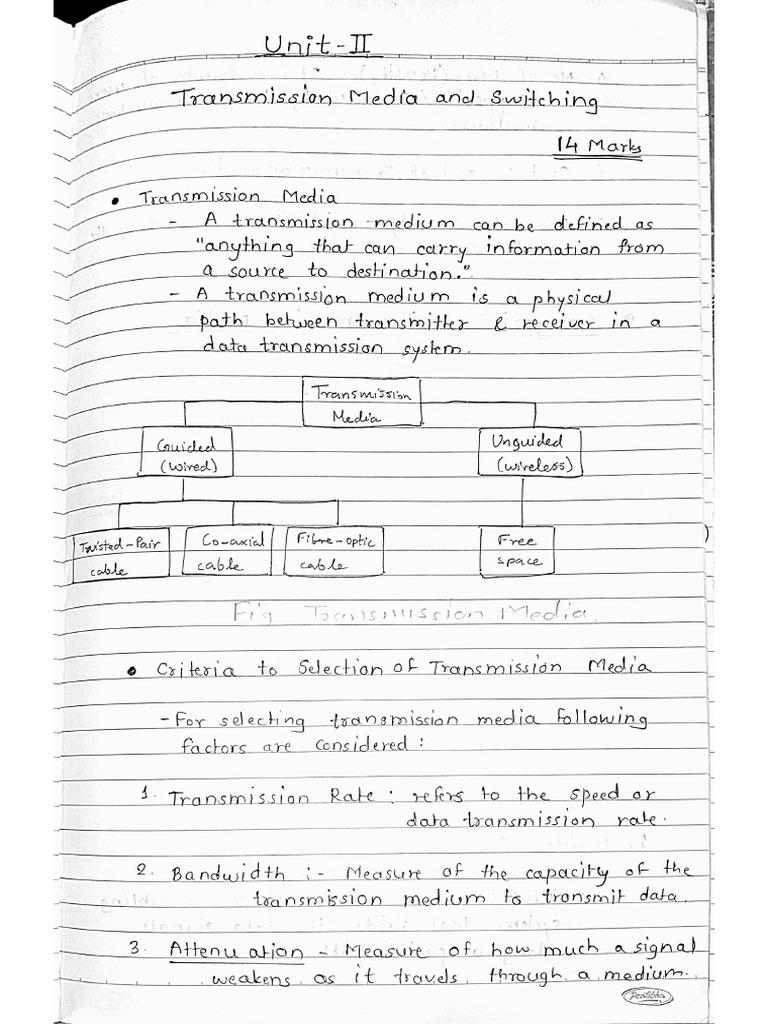 Unit-II
Transmission Media and Switching
14 Marks
• Transmission Media
- A transmission medium can be defined as
"anything that can carry information from
a source to destination."
- A transmission medium is a physical
path between transmitter & receiver in a
data transmission system.
Transmission
Media
Guided
(wired)
Unguided
(wireless)
Twisted-Pair
cable
Co-axial
cable
Fibre-optic
cable
Free
space
Fig Transmission Media.
• Criteria to Selection of Transmission Media
- For selecting transmission media following
factors are considered :
1. Transmission Rate : refers to the speed or
data transmission rate.
2. Bandwidth :- Measure of the capacity of the
transmission medium to transmit data.
3. Attenuation - Measure of how much a signal
weakens as it travels through a medium.
Pratibha